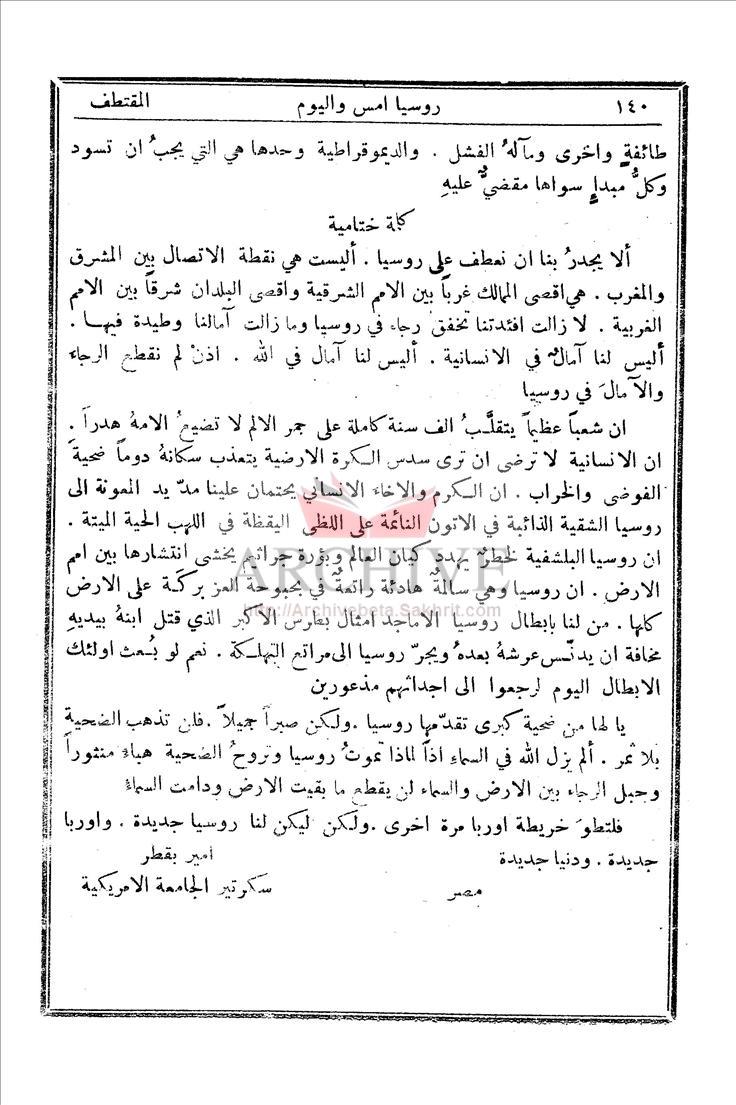 ١٤٠ روسيا امس واليوم المقتطف
طائفةٍ واخرى ومآلهُ الفشل . والديموقراطية وحدها هي التي يجبُ ان تسود
وكلُّ مبدإٍ سواها مقضيٌّ عليهِ
كلمة ختامية
ألا يجدرُ بنا ان نعطف على روسيا . أليست هي نقطة الاتصال بين المشرق
والمغرب . هي اقصى الممالك غرباً بين الامم الشرقية واقصى البلدان شرقاً بين الامم
الغربية . لا زالت افئدتنا تخفق رجاء في روسيا وما زالت آمالنا وطيدة فيهـا .
أليس لنا آمالٌ في الانسانية . أليس لنا آمال في الله . اذنْ لم نقطع الرجاء
والآمالَ في روسيا
ان شعباً عظيماً يتقلَّبُ الف سنة كاملة على جمر الالم لا تضيعُ الامهُ هدراً .
ان الانسانية لا ترضى ان ترى سدس الكرة الارضية يتعذب سكانهُ دوماً ضحية
الفوضى والخراب . ان الكرم والاخاء الانساني يحتمان علينا مدّ يد المعونة الى
روسيا الشقية الذائبة في الاتون النائمة على اللظى اليقظة في اللهب الحية الميتة .
ان روسيا البلشفية لخطرٌ يهدد كيان العالم وبؤرة جراثيم يخشى انتشارها بين امم
الارض . ان روسيا وهي سالمةٌ هادئة راتعةٌ في بحبوحة العز بركة على الارض
كلها . من لنا بابطال روسيا الاماجد امثال بطرس الاكبر الذي قتل ابنهُ بيديهِ
مخافة ان يدنّس عرشهُ بعدهُ ويجرّ روسيا الى مراتع التهلكة . نعم لو بُعث اولئك
الابطال اليوم لرجعوا الى اجداثهم مذعورين
يا لها من ضحية كبرى تقدّمها روسيا . ولكن صبراً جميلاً . فلن تذهب الضحية
بلا ثمر . ألم يزل الله في السماء اذاً لماذا تموتُ روسيا وتروحُ الضحية هباءً منثوراً
وحبل الرجاء بين الارض والسماء لن يقطع ما بقيت الارض ودامت السماءُ
فلتطوَ خريطة اوربا مرة اخرى . ولكن ليكن لنا روسيا جديدة . واوربا
جديدة . ودنيا جديدة امير بقطر
مصر سكرتير الجامعة الامريكية
ARCHIVE
http://Archivebeta.Sakhrit.com